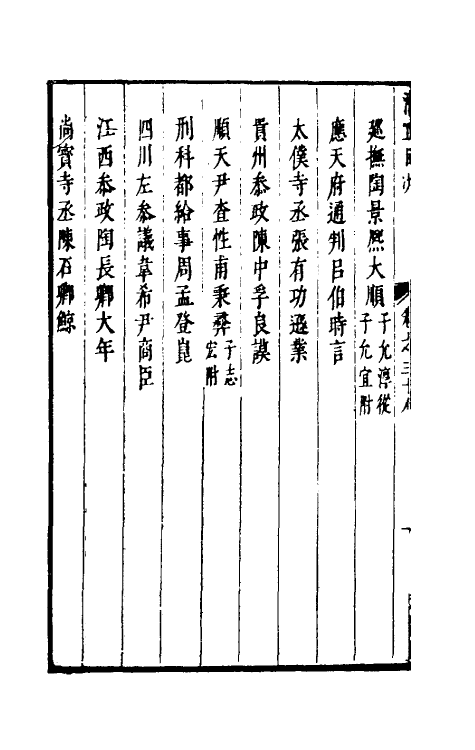 廵撫陶景熈大順子允淳從子允宜附
應天府通判吕伯時言
太僕寺丞張有功遜業
貴州叅政陳中孚良謨
順天尹查性甫秉彞子志宏附
刑科都給事周孟登崑
四川左叅議韋希尹商臣
江西叅政陶長卿大年
尚寳寺丞陳石卿鯨